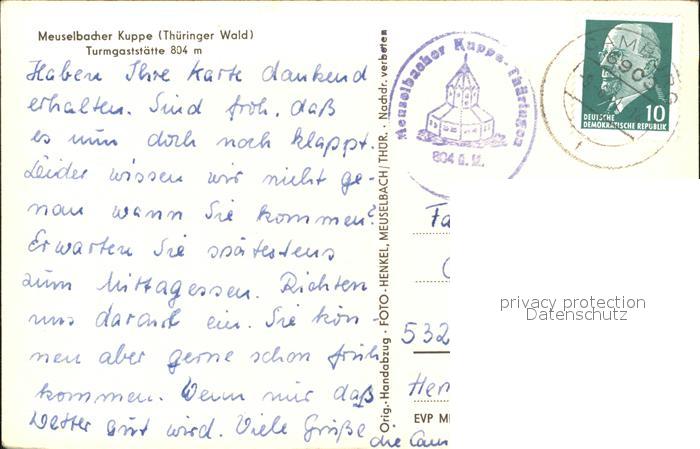 Meuselbacher Kuppe (Thüringer Wald)
Turmgaststätte 804 m
Haben Ihre Karte dankend
erhalten. Sind froh, daß
es nun doch noch klappt.
Leider wissen wir nicht ge-
nau wann Sie kommen?
Erwarten Sie spätestens
zum Mittagessen. Richten
uns darauf ein. Sie kön-
nen aber gerne schon früh
kommen. Wenn nur daß
Wetter gut wird. Viele Grüße
die
Orig.-Handabzug · FOTO-HENKEL, MEUSELBACH/THÜR. · Nachdr. verboten
Meuselbacher Kuppe-Thüringen
804 ü. M.
10
DEUTSCHE
DEMOKRATISCHE REPUBLIK
Fa
532
Her
EVP M
privacy protection
Datenschutz